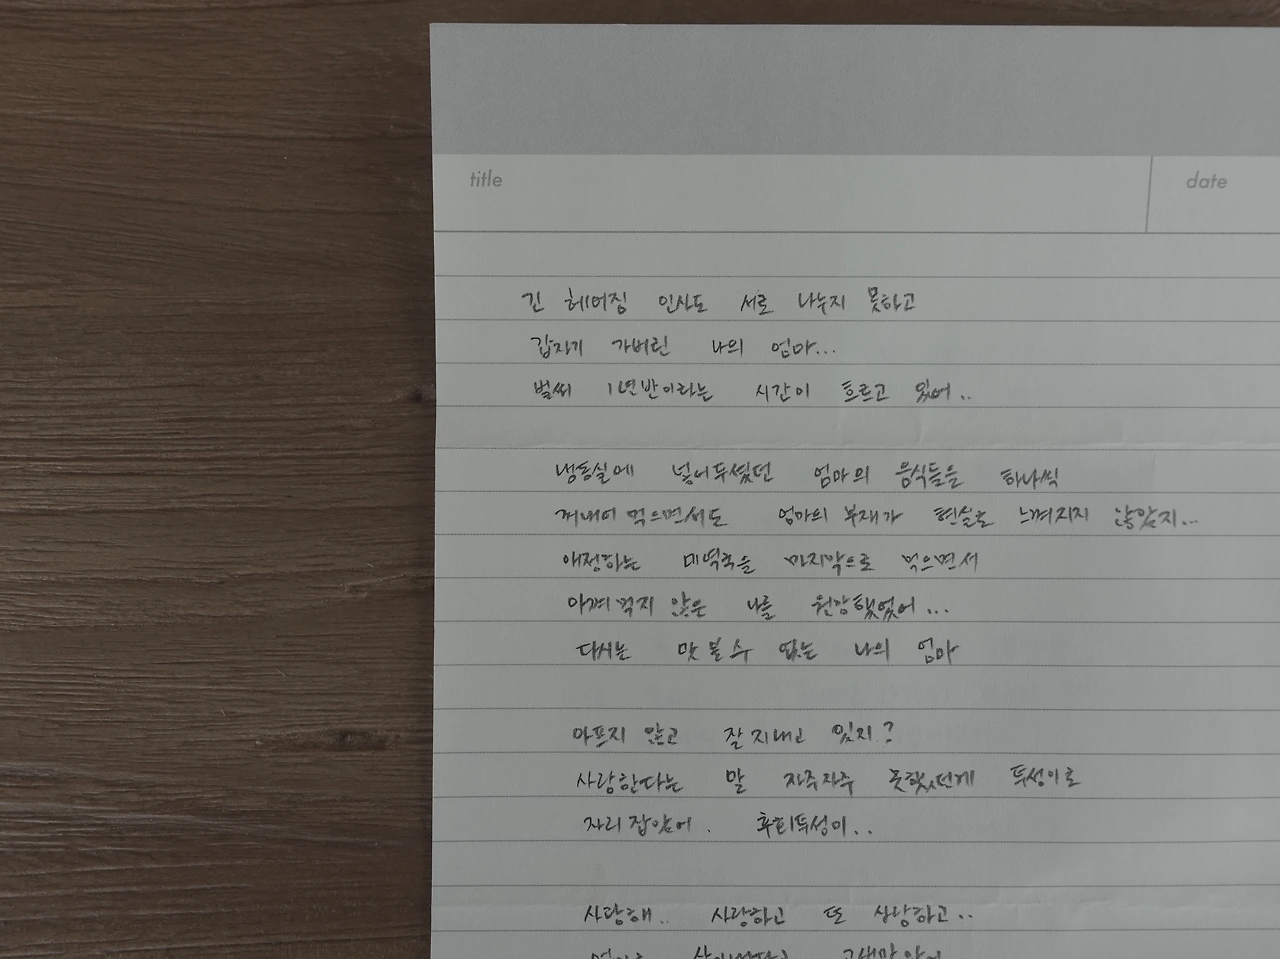 title
date
긴 헤어짐 인사도 서로 나누지 못하고
갑자기 가버린 나의 엄마...
벌써 1년반이라는 시간이 흐르고 있어..
냉동실에 넣어두셨던 엄마의 음식들을 하나씩
꺼내어 먹으면서도 엄마의 부재가 현실로 느껴지지 않았지...
애정하는 미역국을 마지막으로 먹으면서
아껴먹지 않은 나를 원망했었어...
다시는 맛볼수 없는 나의 엄마
아프지 않고 잘지내고 있지?
사랑한다는 말 자주자주 못했던게 투성이로
자리잡았어. 후회투성이..
사랑해.. 사랑하고 또 사랑하고..